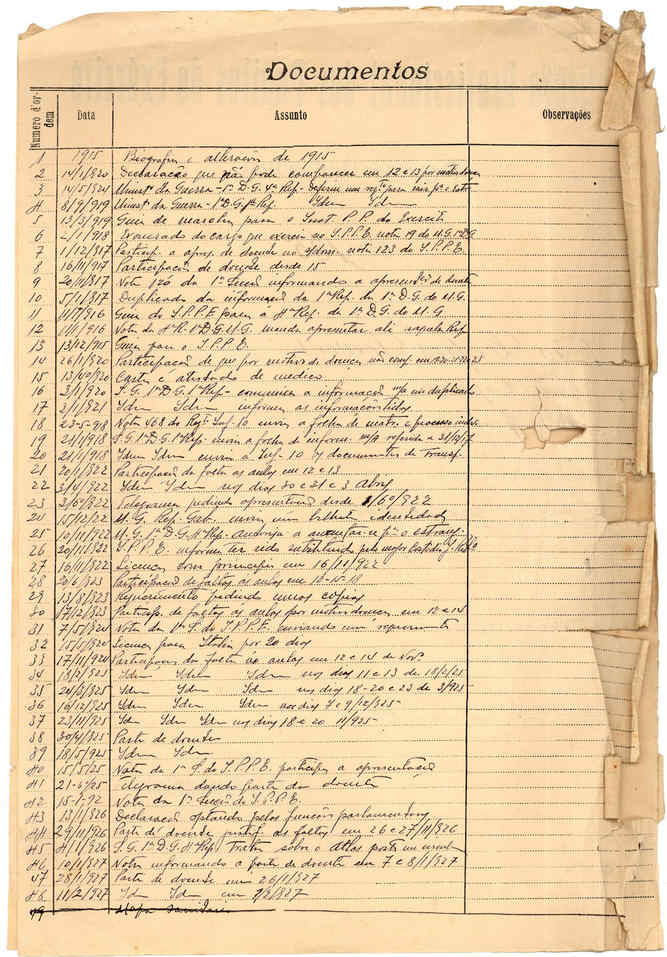 Documentos
Numero d'ordem Data Assunto Observações
1 1915 Biografia e alterações de 1915
2 14/1/920 Declaração que não pode comparecer em 12 e 13 por motivo
3 14/5/924 Minist. da Guerra - 1ª D.G. 4ª Rep.
4 8/9/919 Minist. da Guerra - 1ª D.G. 1ª Rep. Idem Idem
5 13/3/919 Guia de marcha para o Inst. P.P. do Exercito
6 4/1/918 Exonerado do cargo que exercia no I.P.P.E. nota 19 do M.G. 1ª D.G
7 1/12/917 Particip. a apres. de doente no nota 123 do I.P.P.E.
8 16/11/917 Participação de doença desde 15
9 20/11/817 Nota 126 da 1ª Secção informando a apresentação de doente
10 5/1/817 Duplicado da informação da 1ª Rep. da 1ª D.G. do M.G.
11 1/17/916 Guia do I.P.P.E. para a 4ª Rep. da 1ª D.G. do M.G
12 1/1/916 Nota da 4ª R. 1ª D.G. M.G. manda apresentar ali aquela Rep
13 13/12/915 Guia para o I.P.P.E.
14 26/1/920 Participação de que por motivo de doença não comp. em
15 13/10/920 Carta e atestado de medico
16 3/1/920 I.G. 1ª D.G. 1ª Rep. - comunica a informação em duplicado
17 2/1/921 Idem Idem informem as informações tidas
18 23-5-918 Nota 468 do Regto Inf. 10 envia a folha de matr. e processo
19 24/1/918 I.G. 1ª D.G. 1ª Rep. envia a folha de inform. referida a 31/12/17
20 21/1/918 Idem Idem envia á Inf. 10 documentos de transf.
21 20/1/922 Participação de falta ás aulas em 12 e 13
22 3/4/922 Idem Idem nos dias 30 e 31 e 3 Abril
23 3/6/922 Telegrama pedindo apresentação desde 1/6/922
24 15/12/922 M.G. Rep. Gab. envia um bilhete identidade
25 10/11/922 M.G. 1ª D.G. 4ª Rep. Autoriza a ausentar-se p.ª o estrang.
26 20/11/922 I.P.P.E. informa ter sido substituido pelo major
27 16/11/922 Licença com principio em 16/11/922
28 20/6/923 Participação de faltas ás aulas em 14-15-18
29 13/8/923 Requerimento pedindo umas copias
30 17/12/923 Particip. de faltas ás aulas por motivo doença em 12 e 14
31 7/5/924 Nota da 1ª S. do I.P.P.E. enviando um requerimento
32 15/5/924 Licença para Italia por 20 dias
33 17/11/924 Participações da falta ás aulas em 12 e 14 de Nov.
34 18/2/925 Idem Idem Idem nos dias 11 e 13 de 18/2/25
35 24/3/925 Idem Idem Idem nos dias 18-20 e 23 de 3/925
36 16/12/925 Idem Idem Idem nos dias 7 e 9/12/925
37 23/11/925 Idem Idem Idem nos dias 18 e 20 11/925
38 30/4/925 Parte de doente
39 18/5/925 Idem Idem
40 15/5/25 Nota da 1ª S. do I.P.P.E. participa a apresentação
41 21-4/25 dando parte de doente
42 Nota da 1ª Secção do I.P.P.E.
43 13/1/926 Declaração optando pelas funções parlamentares
44 29/11/926 Parte de doente justif. as faltas em 26 e 27/11/926
45 4/1/926 I.G. 1ª D.G. 4ª Rep. Trata sobre o
46 10/1/927 Nota informando a parte de doente em 7 e 8/1/927
47 28/1/927 Parte de doente em 26/1/927
48 11/2/927 Idem Idem em 7/2/927
49 Mapa sanitario